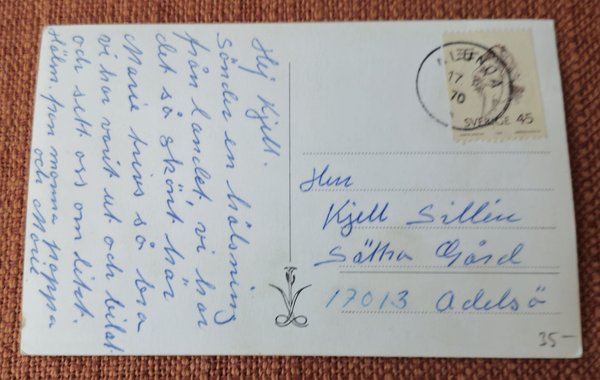 Hej Kjell.
Sänder en hälsning
från landet, vi har
det så skönt här
Marie trivs så bra
vi har varit ut och bilat
och sett oss om litet.
Hälsn. från mamma pappa
och Marie
17
70
SVERIGE 45
Herr
Kjell Sillén
Sätra Gård
17013 Adelsö
35-